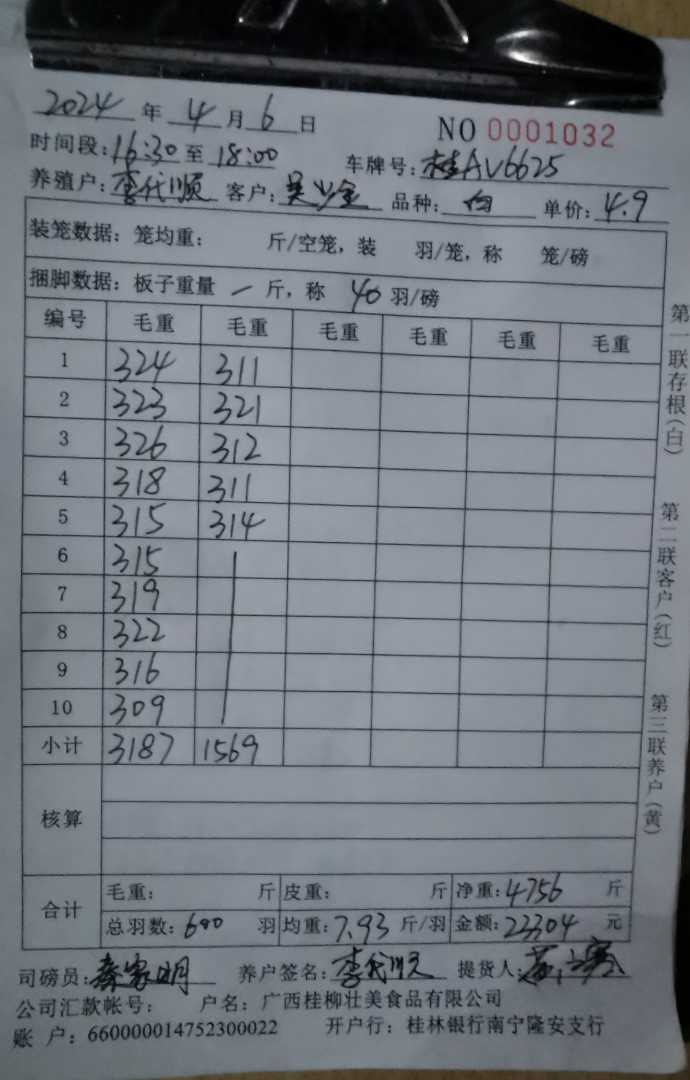 2024 年 4 月 6 日 NO 0001032
时间段: 16:30 至 18:00 车牌号: 桂AV6625
养殖户: 李代顺 客户: 品种: 白 单价: 4.9
装笼数据: 笼均重: 斤/空笼, 装 羽/笼, 称 笼/磅
捆脚数据: 板子重量 一 斤, 称 40 羽/磅
编号 毛重 毛重 毛重 毛重 毛重 毛重
1 324 311
2 323 321
3 326 312
4 318 311
5 315 314
6 315
7 319
8 322
9 316
10 309
小计 3187 1569
核算
合计 毛重: 斤 皮重: 斤 净重: 4756 斤
总羽数: 600 羽 均重: 7.93 斤/羽 金额: 23304 元
司磅员: 秦家明 养户签名: 李代顺 提货人:
公司汇款帐号: 户名: 广西桂柳壮美食品有限公司
账 户: 660000014752300022 开户行: 桂林银行南宁隆安支行
第一联存根(白) 第二联客户(红) 第三联养户(黄)